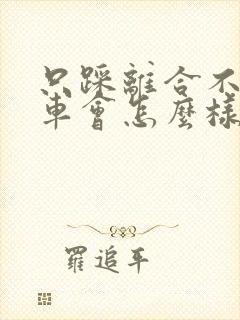 只踩離合不
車會怎麼樣
羅追平